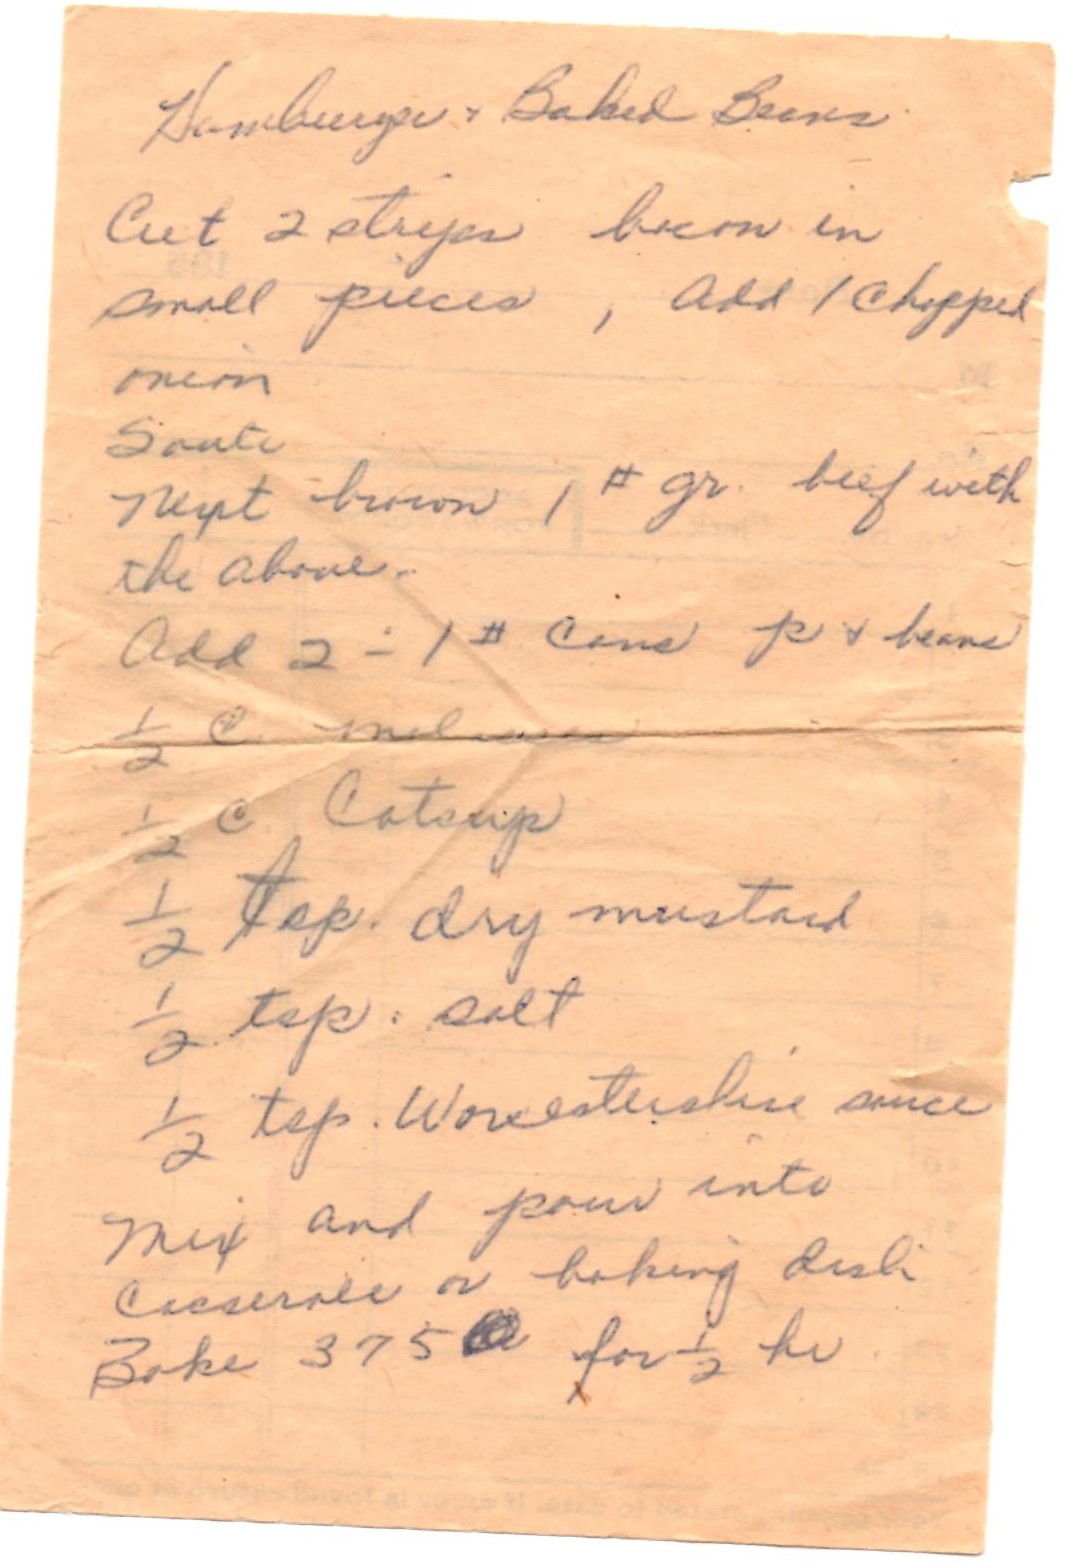 Hamburger & Baked Beans
Cut 2 strips bacon in
small pieces, Add 1 chopped
onion
Saute
Next brown 1 # gr. beef with
the above.
Add 2 - 1 # cans p & beans
1/2 C. molasses
1/2 C. Catsup
1/2 tsp. dry mustard
1/2 tsp. salt
1/2 tsp. Worcestershire sauce
Mix and pour into
casserole or baking dish
Bake 375 for 1/2 hr.